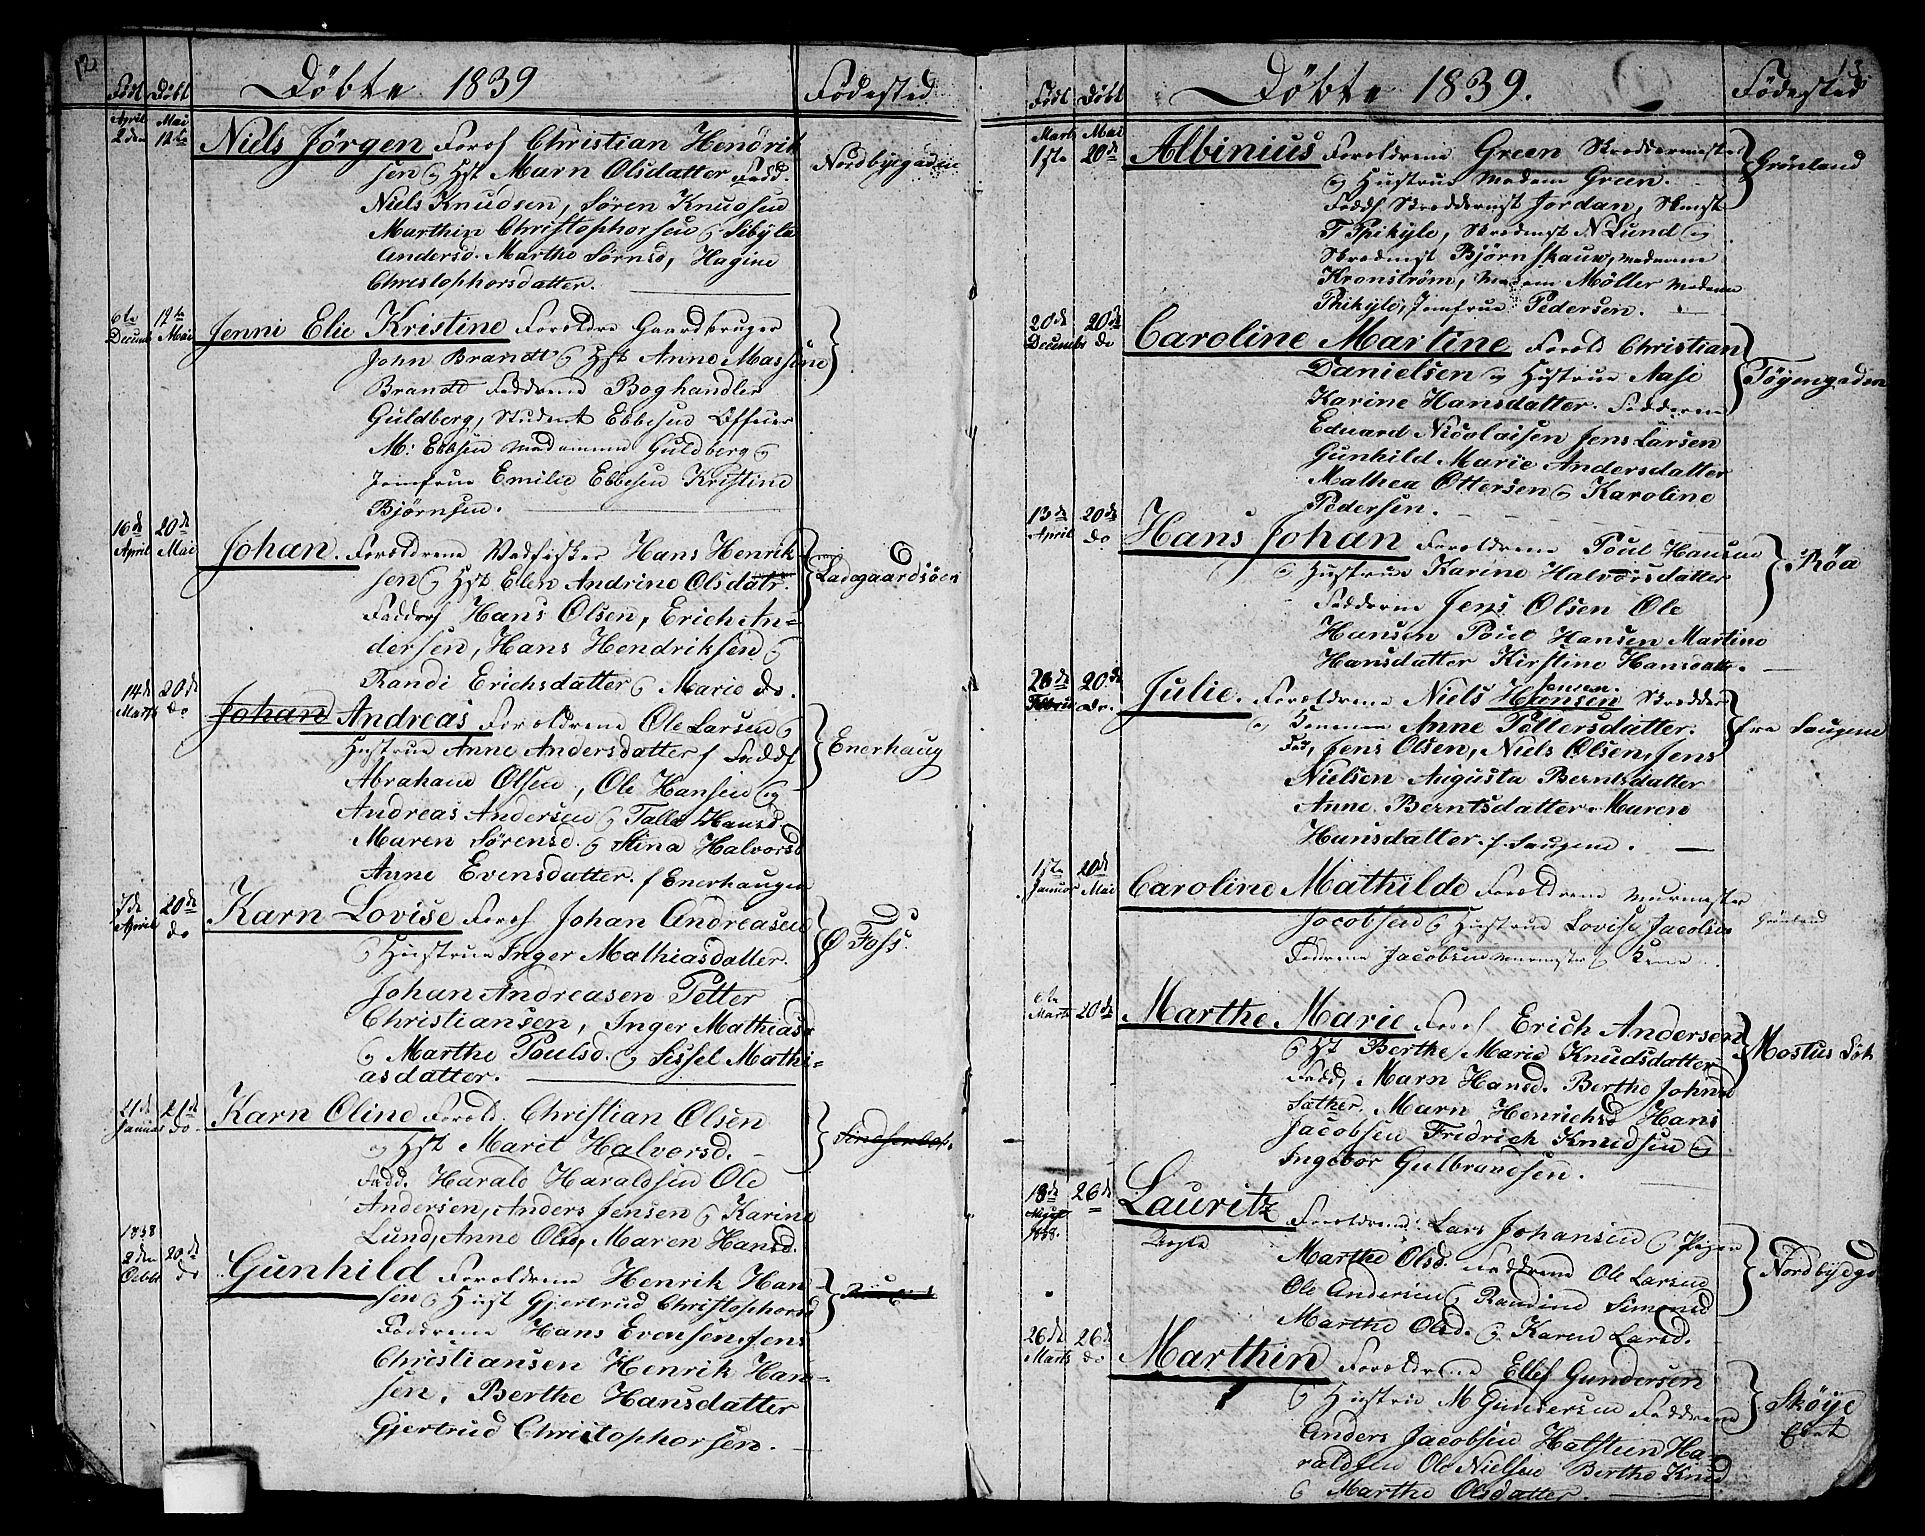 12.
Födt Döbt Döbte 1839 Födested
April 2den Mai 12te Niels Jörgen Foræl Christian Hendrik
sen og Hst Marn Olsdatter Fadd. Nordbyegaden
Niels Knudsen, Sören Knudsen
Marthin Christophorsen og Sibylle
Andersd. Marthe Sörnsd, Hagine
Christophorsdatter.
6te Decemb 12te Mai Jenni Elie Kristine Forældre Gaardbruger
John Brandt og Hst Anne Massine
Brandt Faddrene Boghandler
Guldberg, Student Ebbesen Officier
M: Ebbsen Madammen Guldberg og
Jomfrue Emilie Ebbesen Kristine
Björnsen.
16de April 20de Mai Johan. Forældrene Vedfisker Hans Henrik
sen og Hst Elen Andrine Olsdatr. Ladegaardsöen
Faddres Hans Olsen, Erich An-
dersen, Hans Hendriksen og
Randi Erichsdatter og Marie do.
14de Marts 20de do Johan Andreas Forældrene Ole Larsen og
Hustrue Anne Andersdatter Fadd Enerhaug
Abraham Olsen, Ole Hansen og
Andreas Andersen og Talle Hansd
Maren Sörensd. og Stina Halvorsd
Anne Evensdatter. f Enerhaugen
7de April 20de do Karn Lovise Foræl Johan Andreasen
og Hustrue Inger Mathiasdatter. Ø Foss.
Johan Andreasen Petter
Christiansen, Inger Mathiasd
og Marthe Poulsd. og Sissel Mathi-
asdatter.
21de Januar 21de do. Karn Oline Foræld. Christian Olsen
og Hst Marit Halvorsd.
Fadd. Harald Haraldsen Ole
Andersen, Anders Jensen og Karine
Lund, Anne Olsd, Maren Hansd.
1838 2den Octob 20de do Gunhild Forældrene Henrik Han
sen og Hust Gjertrud Christophorsd
Faddrene Hans Evensen, Jens
Christiansen Henrik Han-
sen, Berthe Hansdatter
Gjertrud Christophorsen.
13.
Födt Döbt Döbte 1839. Födested
Marts 1ste Mai 20de Albinius Forældrene Green Skreddermester
og Hustrue Madam Green. Grönland
Fadds Skreddermst Jordan, Skmst
T Thikyle, Skredmst N Lund og
Skredmst Björnskauw, Madame
Kronström, Madam Möller Madame
Thikyle, Jomfrue Pedersen.
20de Decemb 20de do Caroline Martine Foræld Christian
Danielsen og Hustrue Aase Töyengaden
Karine Hansdatter. Fadderne
Eduard Nicolaisen Jens Larsen
Gunhild Marie Andersdatter
Mathea Ottersen og Karoline
Pedersen.
13de April 20de do Hans Johan Forældrene Poul Hansen
og Hustrue Karine Halvorsdatter Röa
Fadderne Jens Olsen Ole
Hansen Poul Hansen Martine
Hansdatter Kirstine Hansdatr.
20de do. Julie. Forældrene Niels Hansen Jensen. Skredder
og Konen Anne Pettersdatter. fra Saugene
Fad, Jens Olsen, Niels Olsen, Jens
Nielsen Augusta Berntsdatter
Anne. Berntsdatter Maren
Hansdatter. f Saugene.
1ste Januar 20de Mai Caroline Mathilde Forældrene Murmester
Jacobsen og Hustrue Lovise Jacobsen Grönland
Fadrene Jacobsen Murmester og Kone
6te Marts 20de Marthe Marie Foræl Erich Andersen
og Hst Berthe Marie Knudsdatter
Fadd, Marn Hansd. Berthe Johns
datter. Marn Henrichsd Hans
Jacobsen Fridrich Knudsen og
Ingebor Gulbrandsen.
18de August 1838. 26de Lauritz Forældrene Lars Johansen og Pigen
Uægte Marthe Olsd. Faddrene Ole Larsen Nordbyegd
Ole Andersen og Randine Simensd
Marthe Olsd. og Karen Larsd.
26de Marts 26de do Marthin Forældrene Ellef Gundersen
og Hustrue M Gundersen Faddrene Sköye
Anders Jacobsen Halsteen Ha-
raldsen Ole Nielsen Berthe Knud
og Marthe Olsdatter.